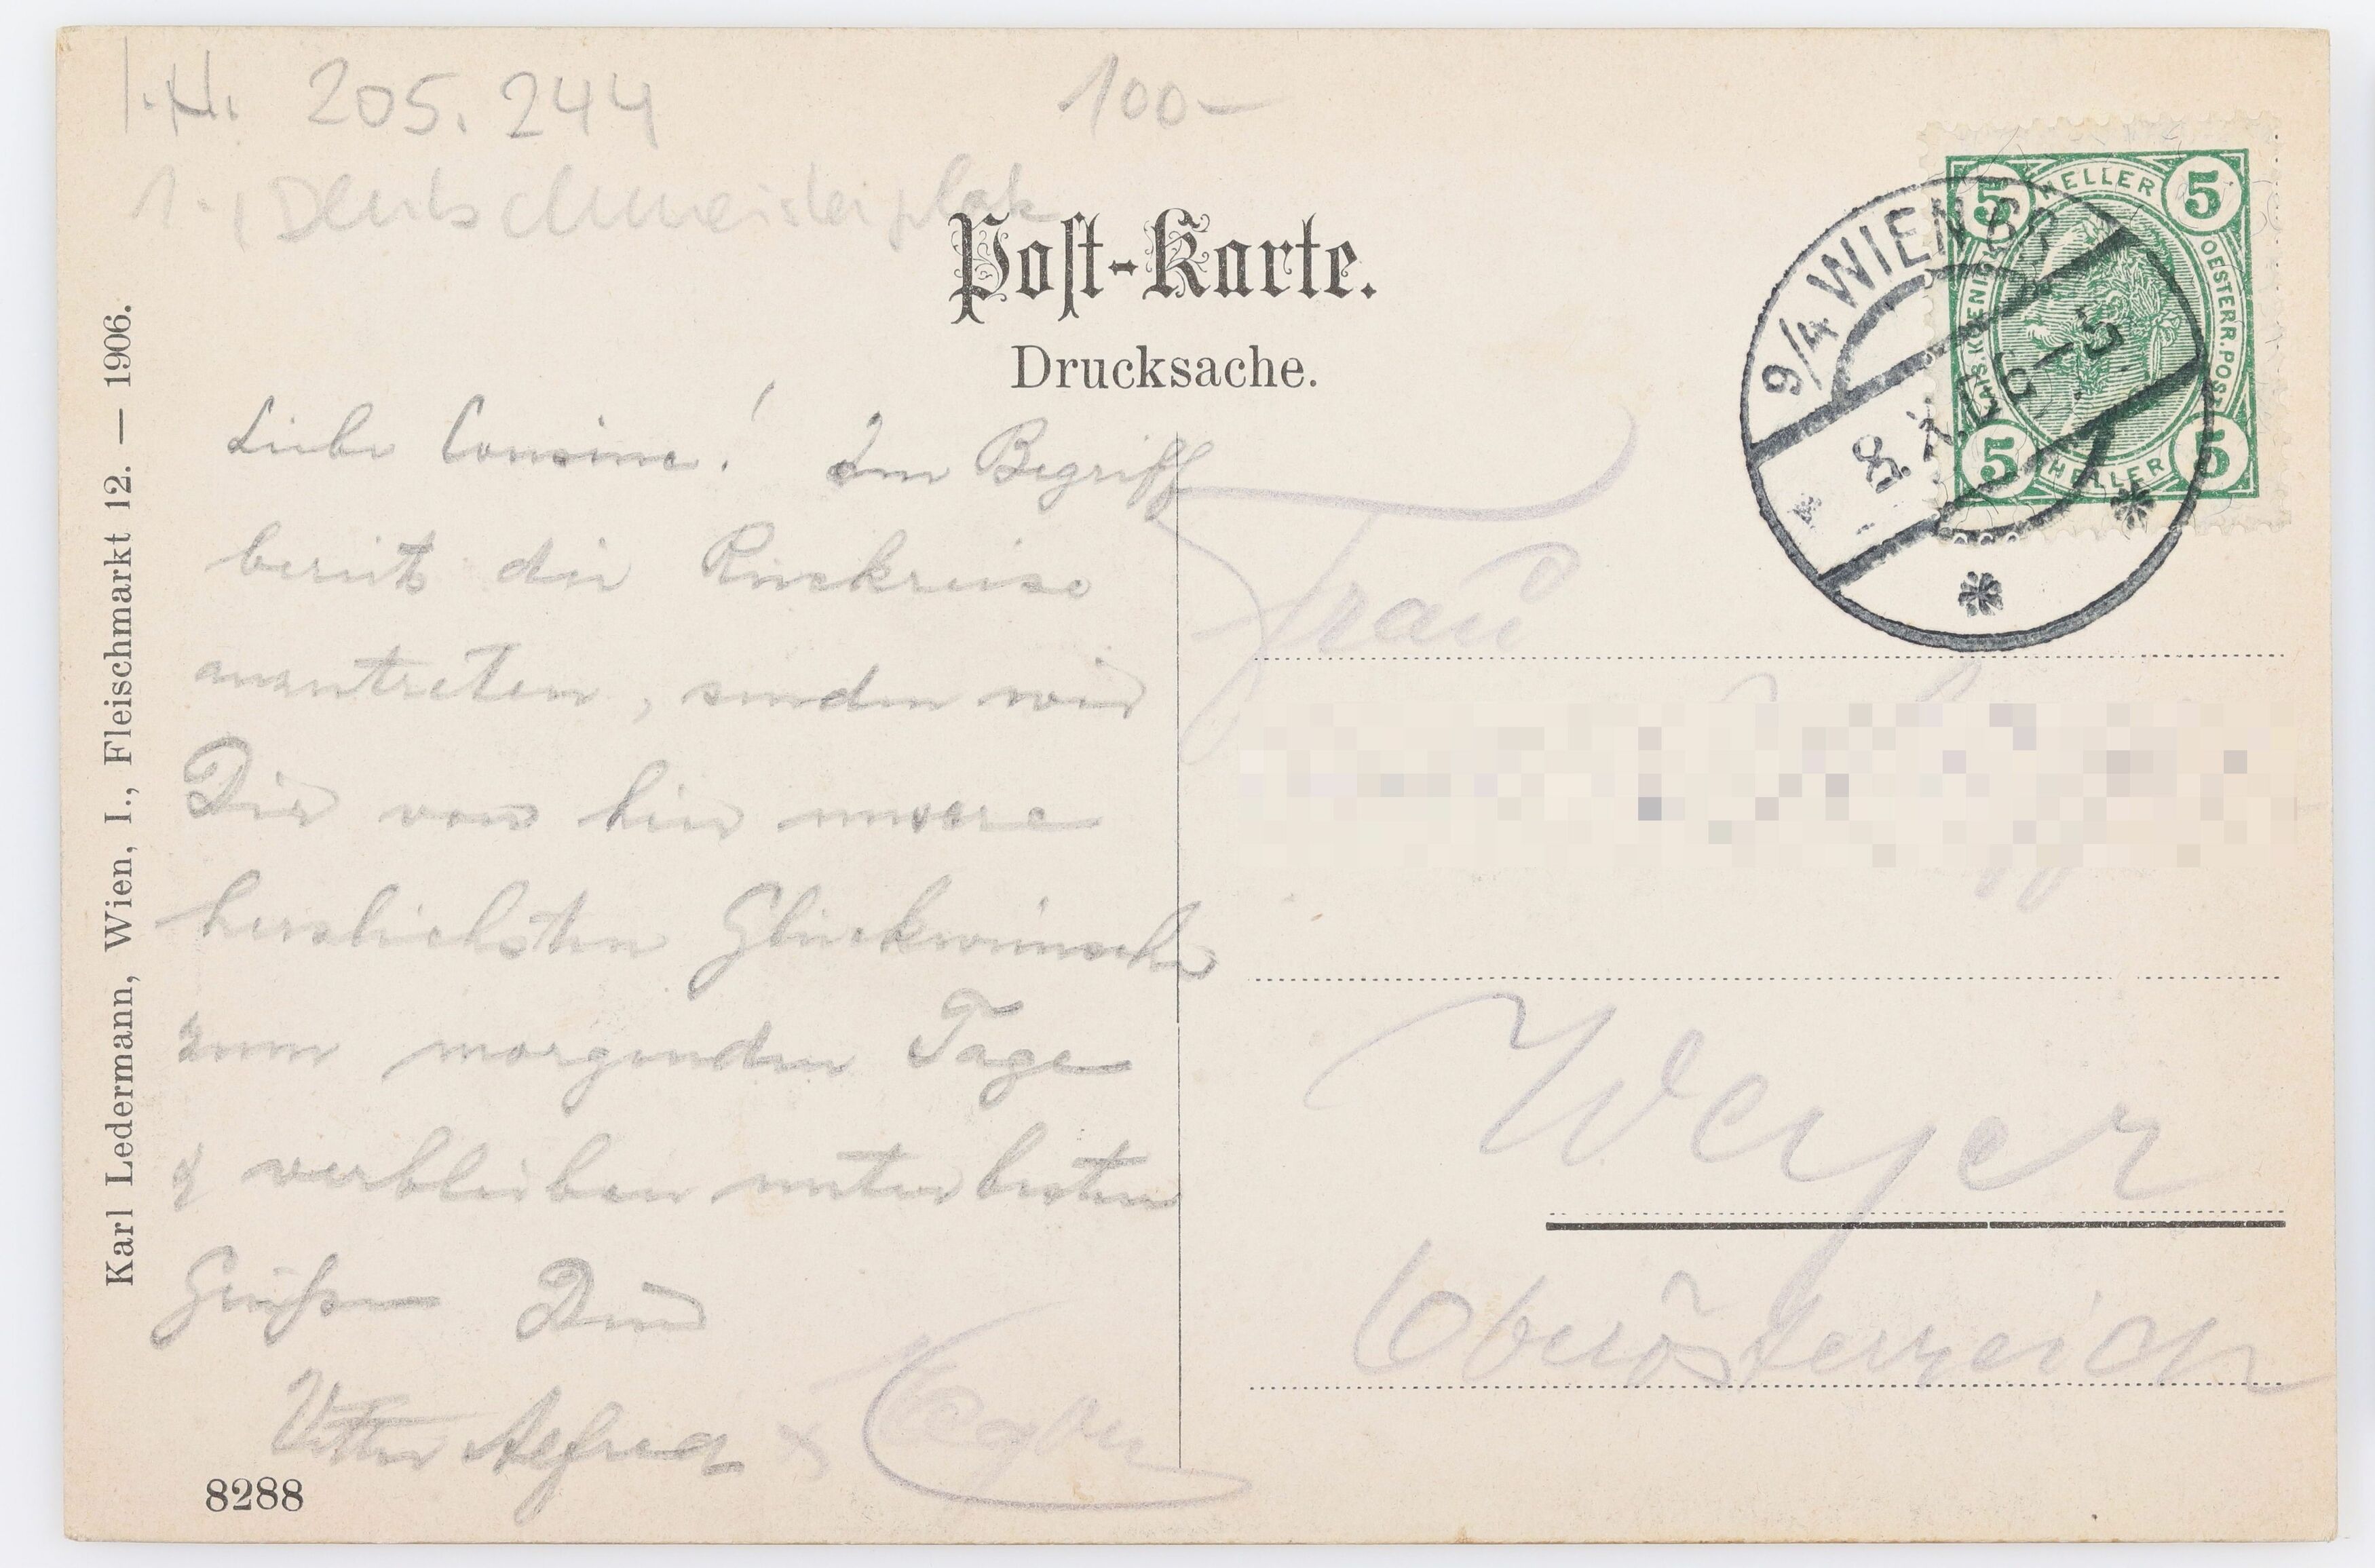 I.N. 205.244
100-
1., Deutschmeisterplatz
Post-Karte.
Drucksache.
Karl Ledermann, Wien, I., Fleischmarkt 12. — 1906.
HELLER
5 5
KAIS. KOENIGL. OESTERR. POST
5 5
HELLER
9/4 WIEN
8. X.
Liebe Cousine! Im Begriff
bereits die Rückreise
anzutreten, senden wir
Dir von hier unsere
herzlichsten Glückwünsche
zum morgenden Tage
& verbleiben unter besten
Grüßen Dein
Vetter Alfred
8288
Frau
Weyer
Oberösterreich